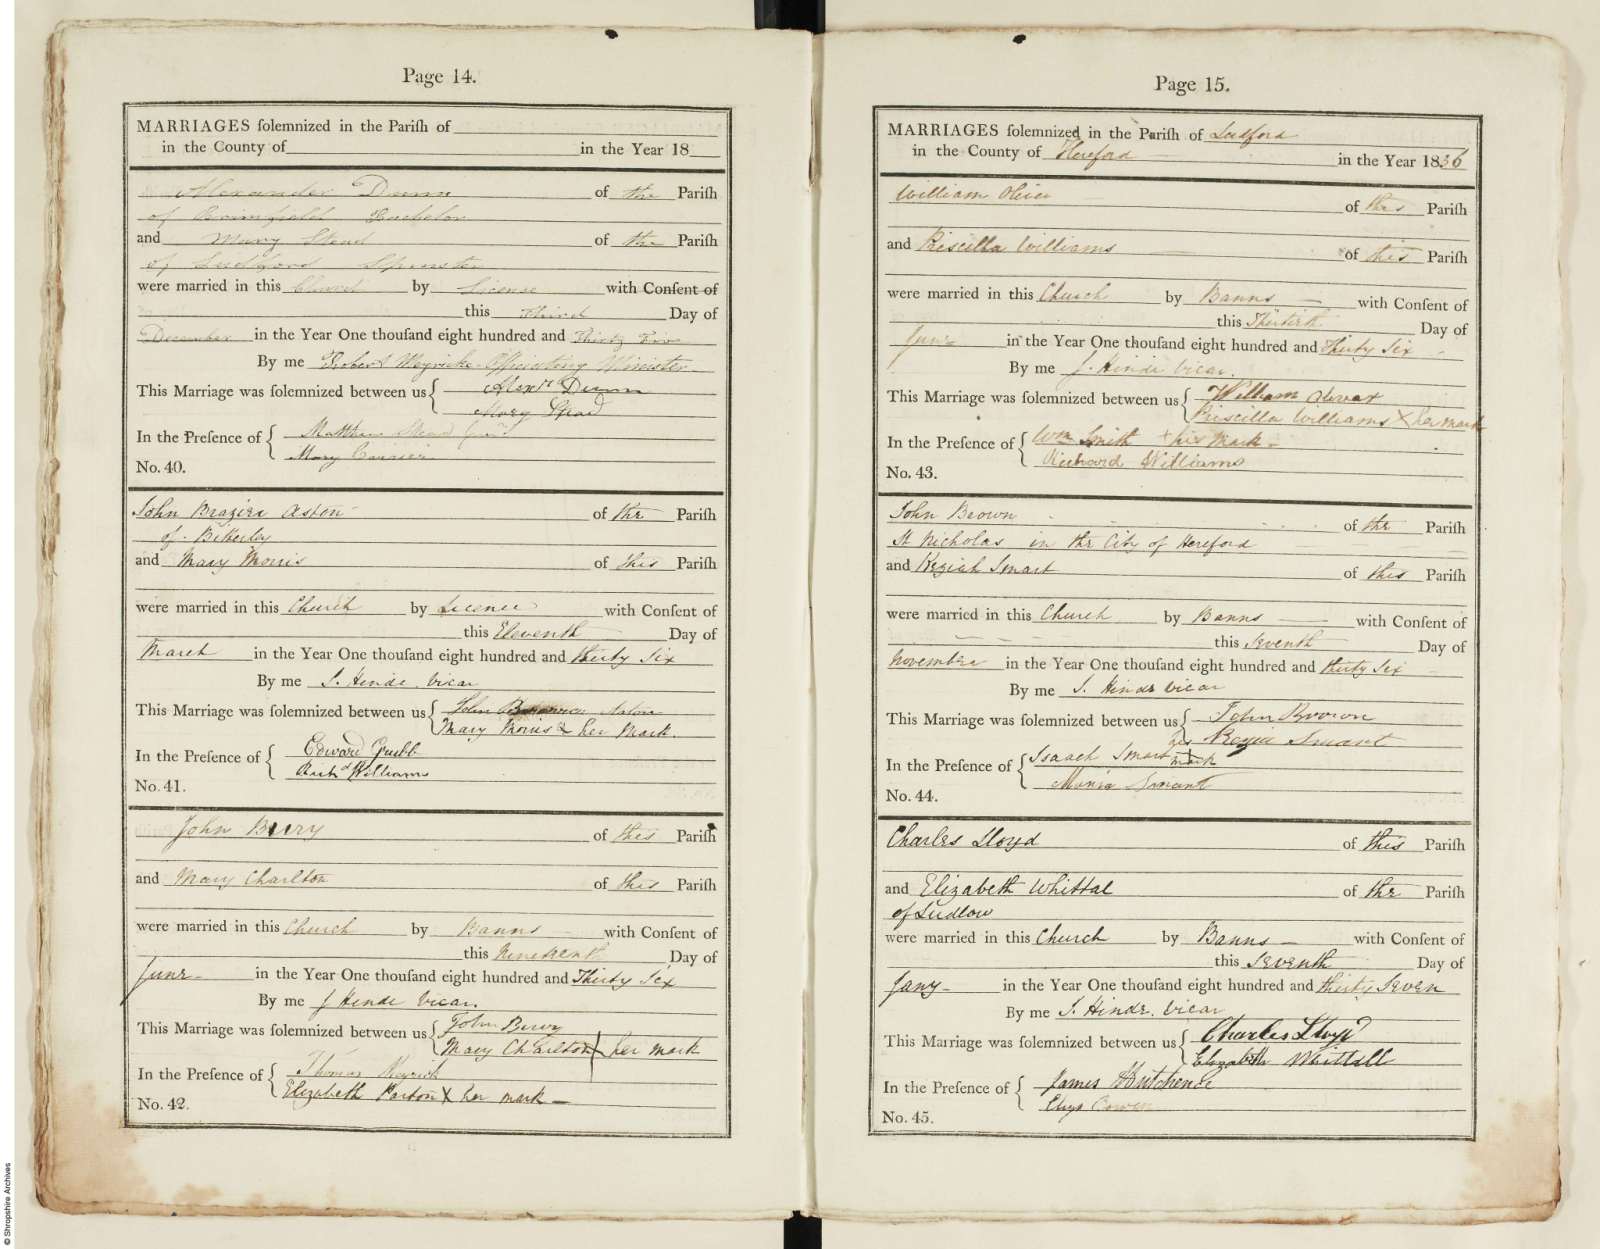 Page 14.
MARRIAGES solemnized in the Parish of
in the County of in the Year 18
Alexander Dunn of the Parish
of Brimfield Bachelor
and Mary Stead of the Parish
of Ludford Spinster
were married in this Church by License with Consent of
this Third Day of
December in the Year One thousand eight hundred and Thirty Five
By me Robert Meyricke Officiating Minister
This Marriage was solemnized between us Alexr Dunn
Mary Stead
In the Presence of Matthew Stead
Mary Currier
No. 40.
John Brazier Aston of the Parish
of Bitterley
and Mary Morris of this Parish
were married in this Church by Licence with Consent of
this Eleventh Day of
March in the Year One thousand eight hundred and thirty Six
By me J. Hinde Vicar
This Marriage was solemnized between us John Aston
Mary Morris x her mark.
In the Presence of Edward Grubb
Richd Williams
No. 41.
John Berry of this Parish
and Mary Charlton of this Parish
were married in this Church by Banns with Consent of
this Nineteenth Day of
June in the Year One thousand eight hundred and Thirty Six
By me J Hinde Vicar.
This Marriage was solemnized between us John Berry
Mary Charlton X her mark
In the Presence of Thomas
Elizabeth Parton X her mark
No. 42.
Page 15.
MARRIAGES solemnized in the Parish of Ludford
in the County of Hereford in the Year 1836
William Oliver of this Parish
and Priscilla Williams of this Parish
were married in this Church by Banns with Consent of
this Thirtieth Day of
June in the Year One thousand eight hundred and Thirty Six
By me J. Hinde Vicar.
This Marriage was solemnized between us William
Priscilla Williams X her mark
In the Presence of Wm Smith + his mark
Richard Williams
No. 43.
John Brown of the Parish
St Nicholas in the City of Hereford
and Keziah Smart of this Parish
were married in this Church by Banns with Consent of
this Seventh Day of
November in the Year One thousand eight hundred and thirty Six
By me J. Hinde Vicar
This Marriage was solemnized between us John Brown
Smart
In the Presence of Isaach Smart his + mark
Maria Smart
No. 44.
Charles Lloyd of this Parish
and Elizabeth Whittal of the Parish
of Ludlow
were married in this Church by Banns with Consent of
this Seventh Day of
Jany in the Year One thousand eight hundred and thirty Seven
By me J. Hinde. Vicar
This Marriage was solemnized between us Charles Lloyd
Elizabeth Whittall
In the Presence of James
No. 45.
© Shropshire Archives